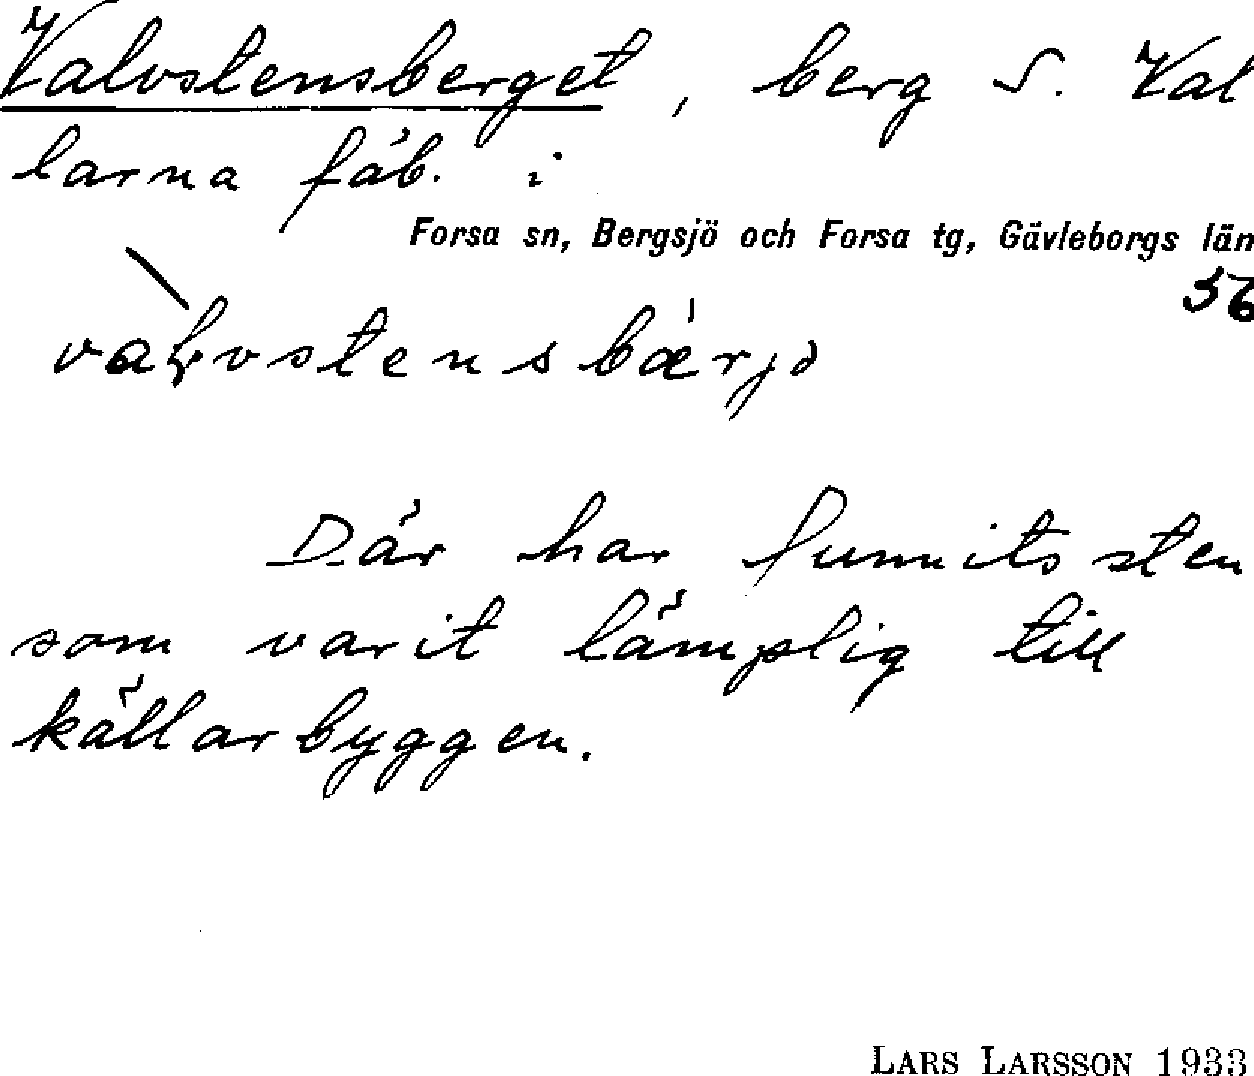 Valvstensberget, berg S. Val
larna fäb. i
Forsa sn, Bergsjö och Forsa tg, Gävleborgs län
36
Där har funnits sten
som varit lämplig till
källarbyggen.
LARS LARSSON 1933